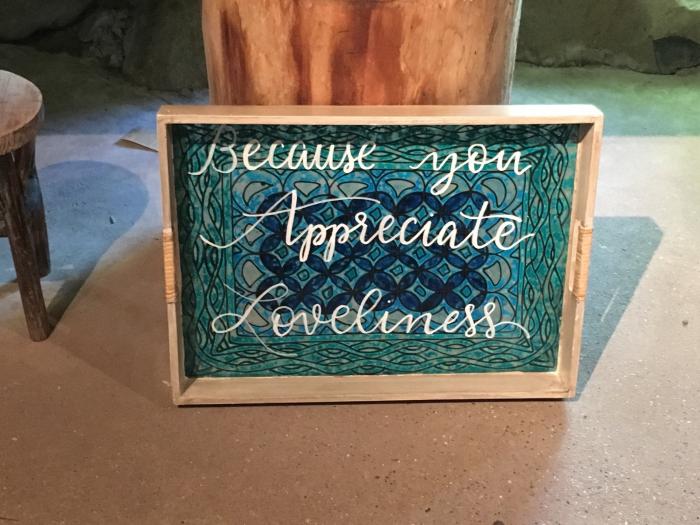 Because you
Appreciate
Loveliness